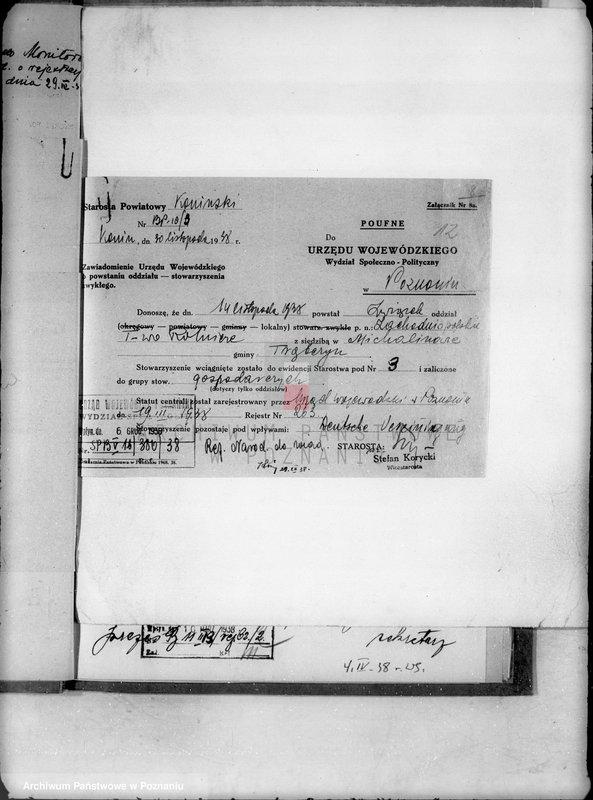 Monitor
o rejestracji
dnia 29.IV.3
Starosta Powiatowy Koniński
Nr BP-18/3
Konin, dn. 30 listopada 1938 r.
Załącznik Nr 8a.
POUFNE
12
Do
URZĘDU WOJEWÓDZKIEGO
Wydział Społeczno-Polityczny
w Poznaniu
Zawiadomienie Urzędu Wojewódzkiego
o powstaniu oddziału — stowarzyszenia
zwykłego.
Donoszę, że dn. 14 listopada 1938 powstał Związek oddział
(okręgowy — powiatowy — gminny — lokalny) stowarz. zwykłe p. n. Zachodniopolskie
T-wo Rolnicze z siedzibą w Michalinowie
gminy
Stowarzyszenie wciągnięte zostało do ewidencji Starostwa pod Nr 3 i zaliczone
do grupy stow. gospodarczych
(dotyczy tylko oddziałów)
Statut centrali został zarejestrowany przez Urząd wojewódzki w Poznaniu
dn. 19.III.1938 Rejestr Nr 223
Stowarzyszenie pozostaje pod wpływami: Deutsche Vereinigung
URZĄD WOJEWÓDZKI
WYDZIAŁ
Wpłyn. dn. 6 GRUD. 1938
SPBV 18/300/38
Drukarnia Państwowa w Poznaniu 1968. 38.
Ref. Narod. do wiad.
29.XII 38.
STAROSTA:
Stefan Korycki
Wicestarosta
1938
sekretarz
4.IV-38-
Archiwum Państwowe w Poznaniu